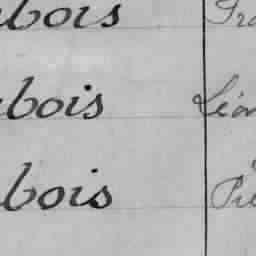 ubois Fra
ubois Léon
bois Pie